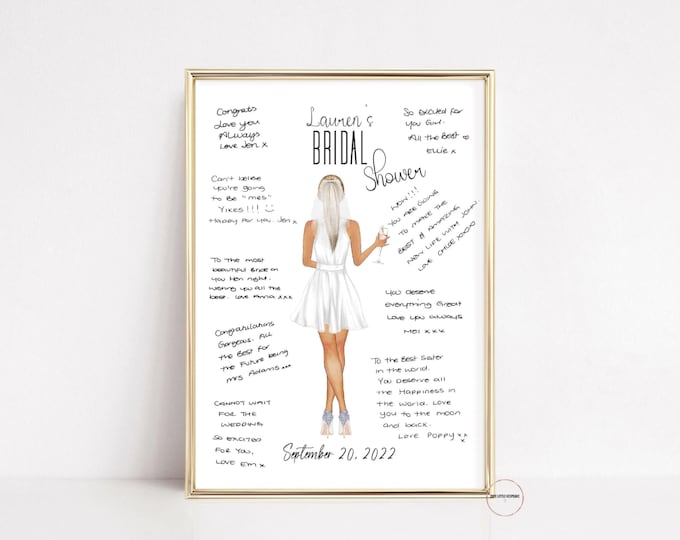 Lauren's
BRIDAL
Shower
Congrats
Love you
Always
Love Jen x
So excited for
you Girl.
All the Best
Ellie x
Can't belive
you're going
to be "mrs"
Yikes!!!
Happy for you. Jen x
WOW!!!
YOU ARE GOING
TO MAKE THE
BEST & AMAZING
NEW LIFE WITH JOHN.
LOVE CHLOE XOXOXO
To the most
beautiful Bride on
you Hen night.
Wishing you all the
best. Love Anna xxx
You deserve
everything Great
Love you always
Mel x x x
Congratulations
Gorgeous. All
the Best for
the future being
Mrs Adams xx
To the Best Sister
in the world.
You Deserve all
the Happiness in
the world. Love
you to the moon
and back.
Love Poppy x x
CANNOT WAIT
FOR THE
WEDDING
SO EXCITED
FOR YOU,
LOVE EM x
September 20, 2022